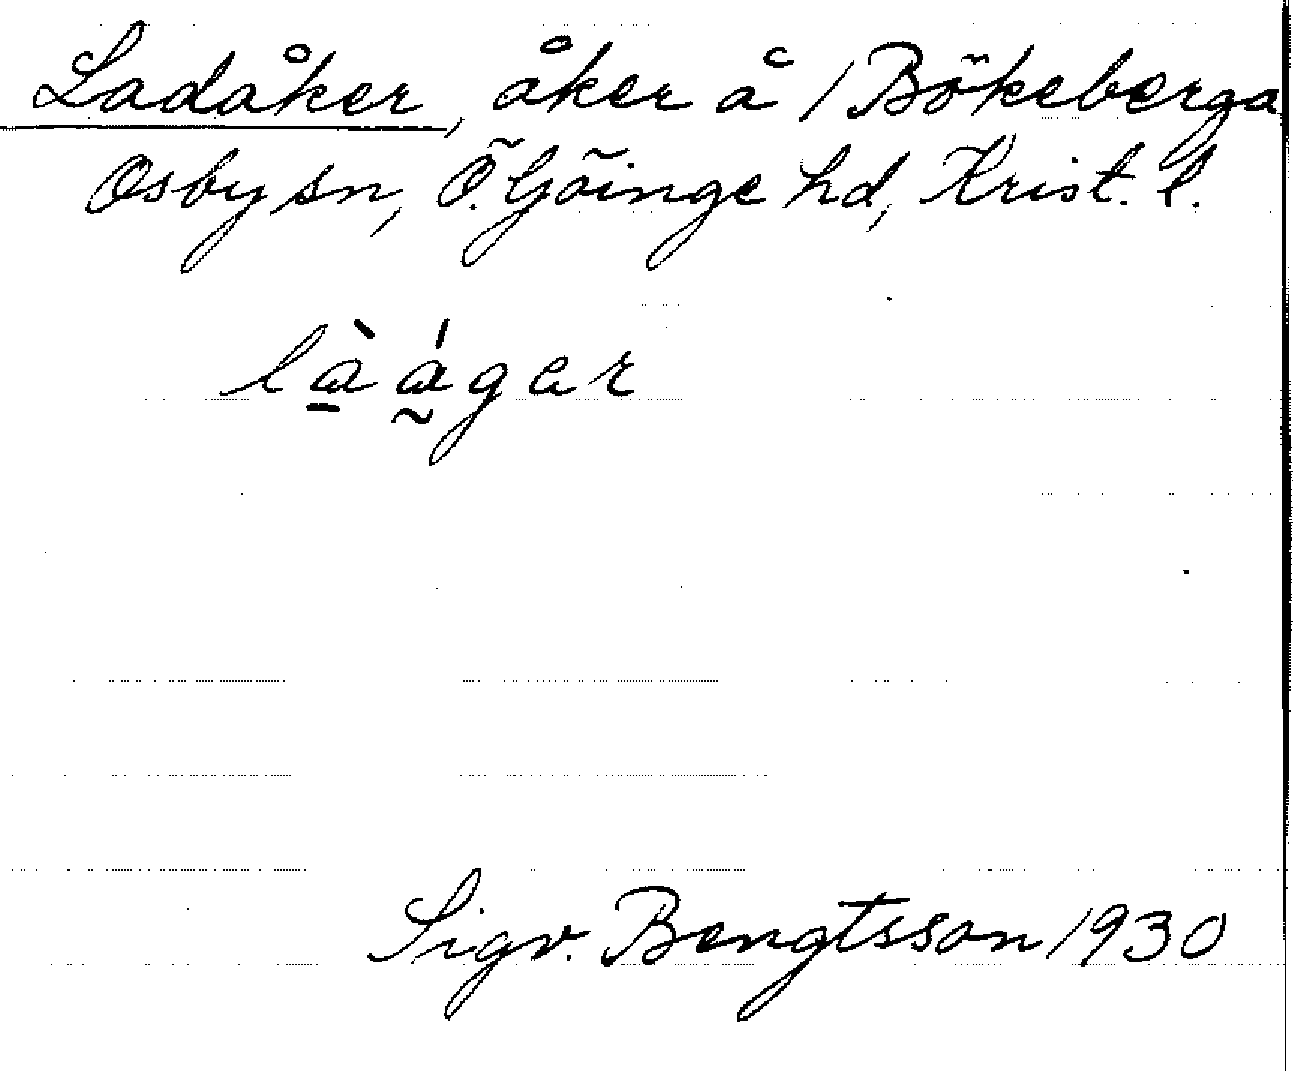 Ladåker, åker å /Bökeberga
Osby sn, Ö. Göinge hd, Krist. l.
làágar
Sigv. Bengtsson 1930